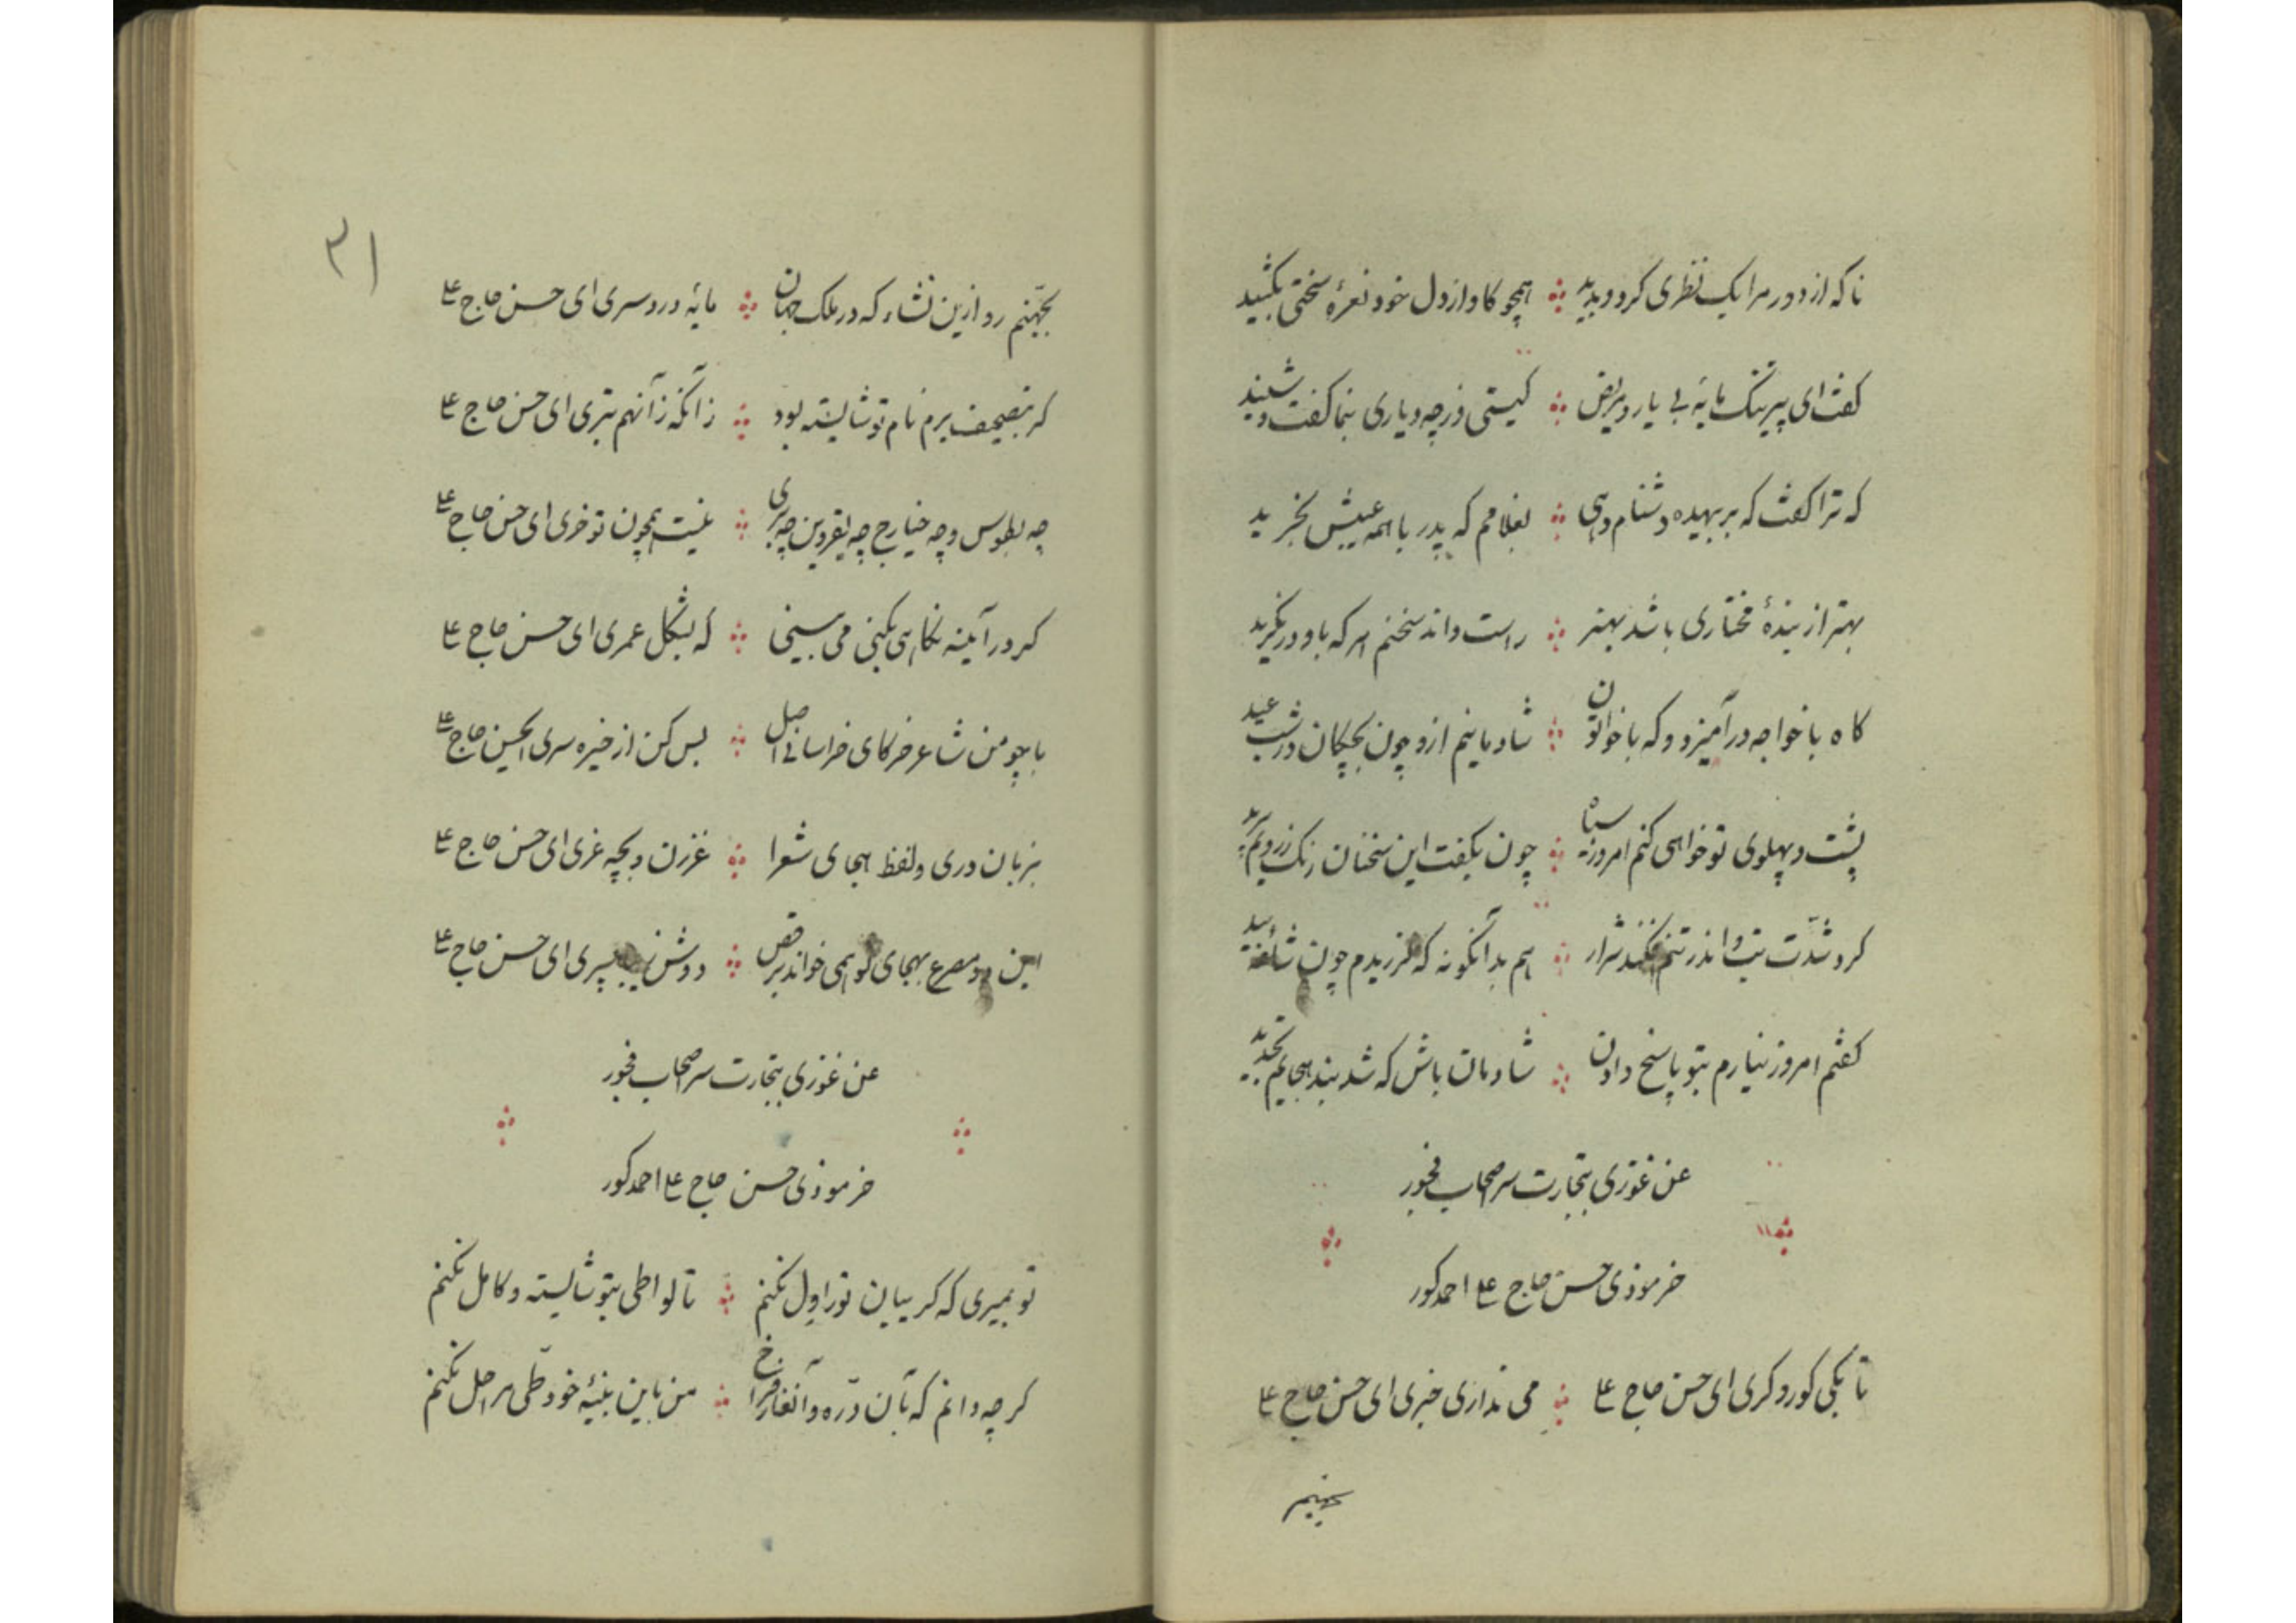 ناکه از دور مرا یک نظری کرد و بدید همچو کاو از دل خود نعرهٔ سختی بکشید
کفت ای پیر تنک مایهٔ بی یار و مریض کیستی وز چه دیاری بنما کفت و شنید
که ترا کفت که بر بیهده دشنام دهی بغلامم که پدر با همه عیبش بخرید
بهتر از بندهٔ مختاری باشد بهنر راست داند سخنم هر که باو در نکرید
کاه با خواجه در آمیزد و که با خواتون شادمانیم ازو چون بچکان در شب عید
پشت و پهلوی تو خواهی کنم امروز سیاه چون بکفت این سخنان رنک ز رویم بپرید
کرد شدّت تب و اندر تنم افکند شرار هم بدآنکونه که لرزیدم چون شاخهٔ بید
کفتم امروز نیارم بتو پاسخ دادن شادمان باش که شد بند هجایم تجدید
عن غوزی بتجارت سر اصحاب فجور
خر موذی حسن حاج علی احمد کور
تا بکی کور و کری ای حسن حاج علی می نداری خبری ای حسن حاج علی
بجهنم
۳۱
بجهّنم رو ازین نشاء که در ملک جهان مایهٔ دردسری ای حسن حاج علی
کر بتصحیف برم نام تو شایسته بود زآنکه زآنهم بتری ای حسن حاج علی
چه بطوس و چه خبارج چه بقزوین چه بری نیست همچون تو خری ای حسن حاج علی
کر در آینه نکاهی بکنی می بینی که بشکل عمری ای حسن حاج علی
با چو من شاعر خرکای خراسانی اصل بس کن از خیره سری ای حسن حاج علی
بزبان دری و لفظ هجای شعرا غرزن و بچه غری ای حسن حاج علی
این دو مصرع بهجای تو همی خواند برقص دوش زیبا پسری ای حسن حاج علی
عن غوزی بتجارت سر اصحاب فجور
خر موذی حسن حاج علی احمد کور
تو بمیری که کر بیان تو را ول نکنم تا لواطی بتو شایسته و کامل نکنم
کر چه دانم که بآن درّه و آنغار فراخ من باین بنیهٔ خود طّی مراحل نکنم